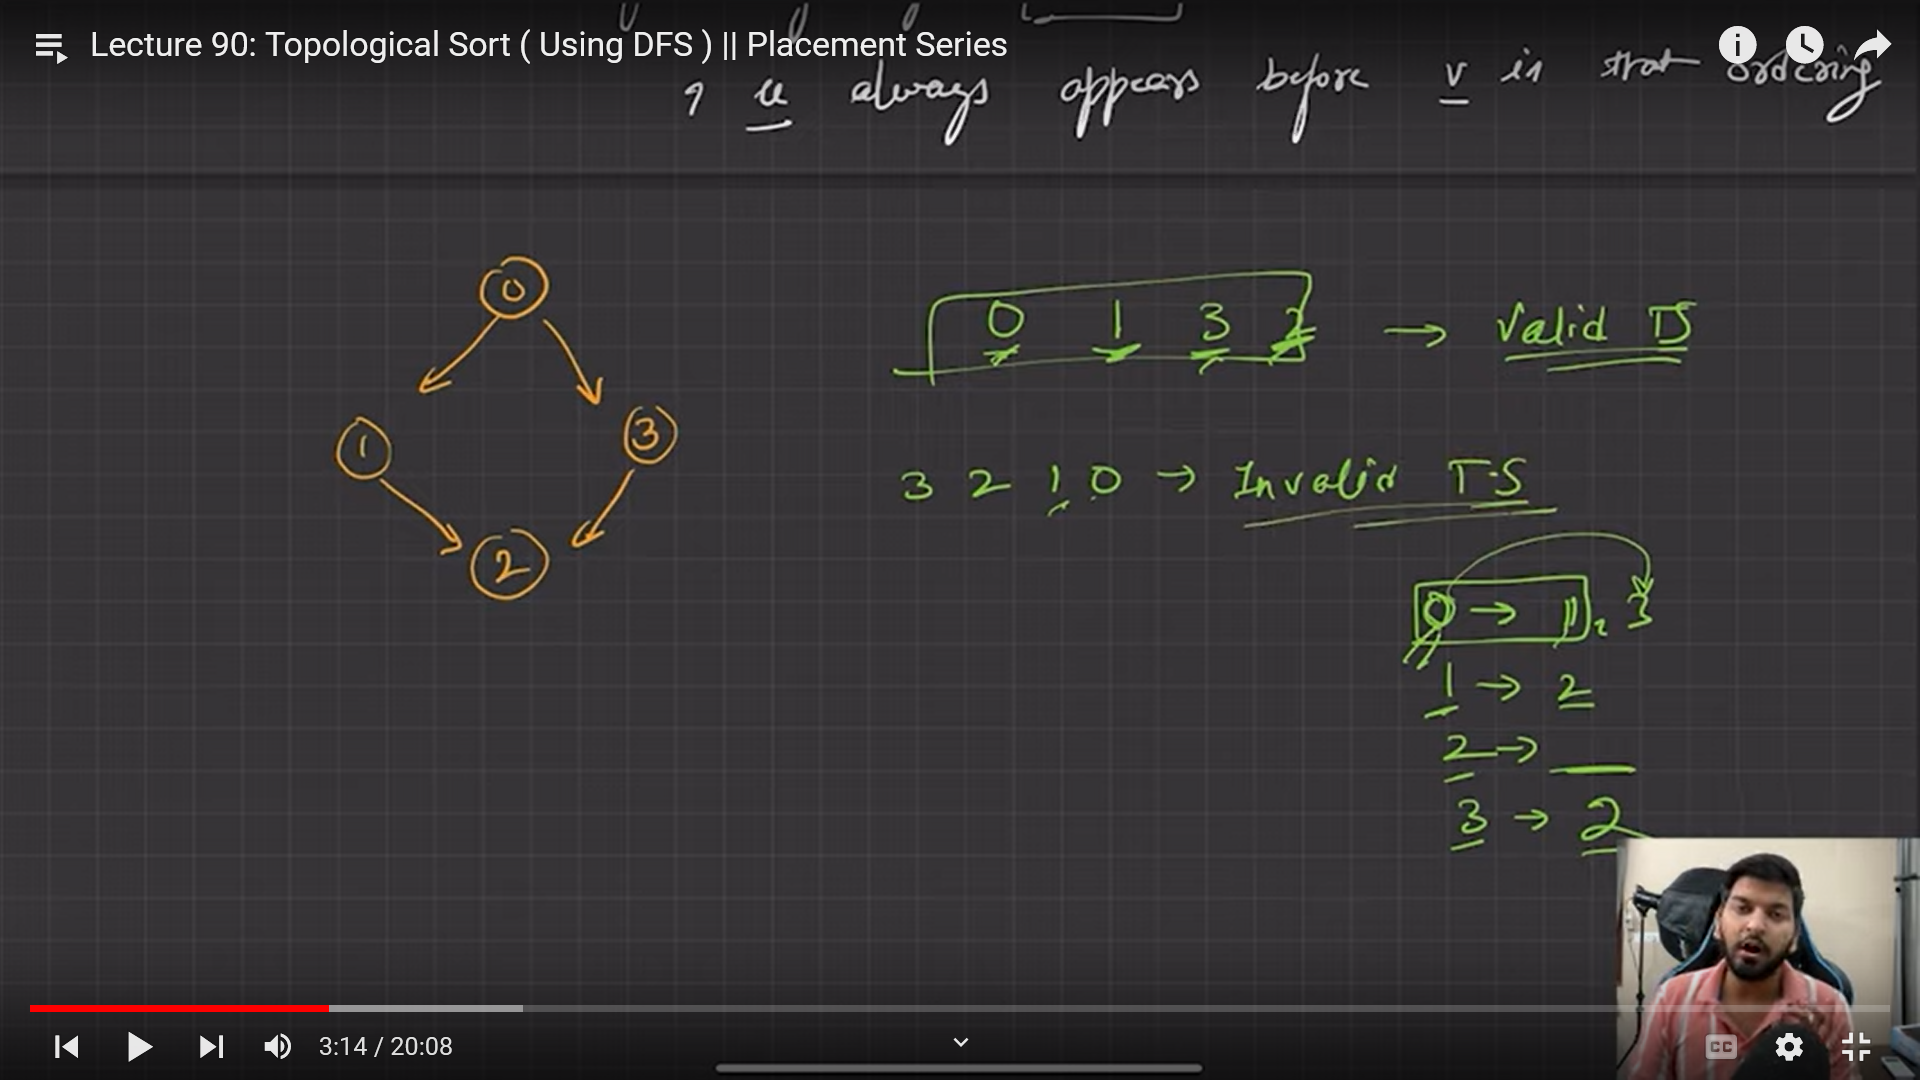 Lecture 90: Topological Sort ( Using DFS ) || Placement Series
, u always appears before v in that ordering
0
1 3
2
0 1 3 2 → Valid TS
3 2 1 0 → Invalid T.S
0 → 1, 3
1 → 2
2 →
3 → 2
3:14 / 20:08
CC